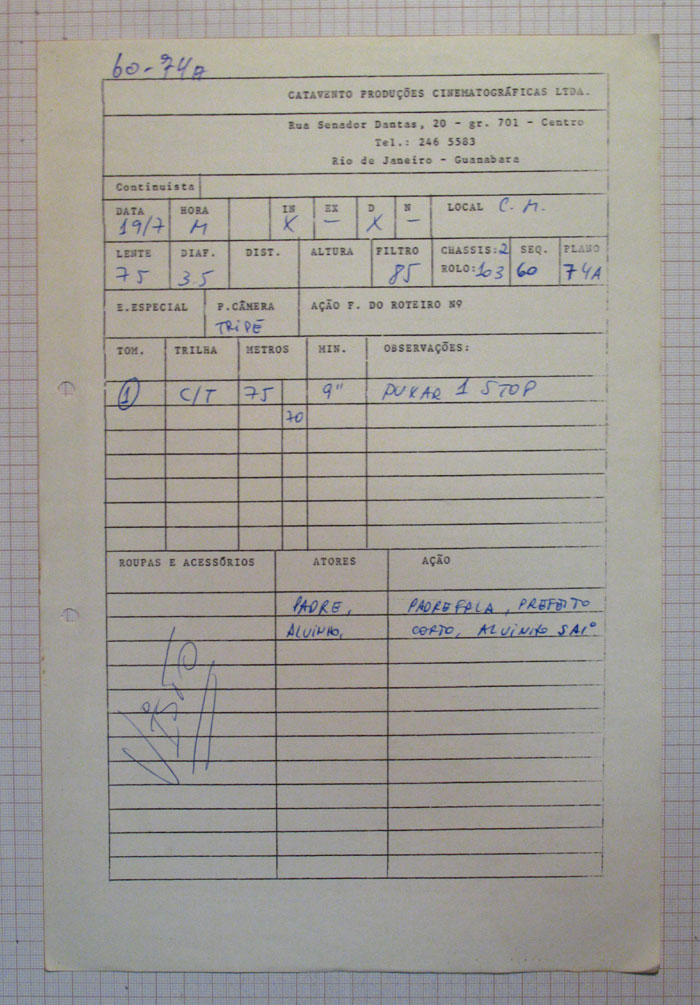 60-74A
CATAVENTO PRODUÇÕES CINEMATOGRÁFICAS LTDA.
Rua Senador Dantas, 20 - gr. 701 - Centro
Tel.: 246 5583
Rio de Janeiro - Guanabara
Continuista
DATA HORA IN EX D N LOCAL C. M.
19/7 M X — X —
LENTE DIAF. DIST. ALTURA FILTRO CHASSIS: 2 SEQ. PLANO
75 3.5 85 ROLO: 103 60 74A
E.ESPECIAL P.CÂMERA AÇÃO F. DO ROTEIRO Nº
TRIPÉ
TOM. TRILHA METROS MIN. OBSERVAÇÕES:
1 C/T 75 9" PUXAR 1 STOP
70
ROUPAS E ACESSÓRIOS ATORES AÇÃO
PADRE, PADRE FALA, PREFEITO
ALVINHO, CORTO, ALVINHO SAI